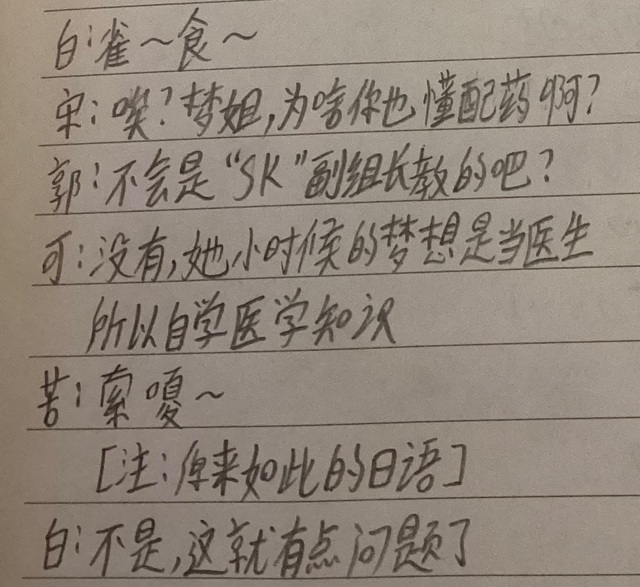 白:雀~食~
宋:唉?梦姐,为啥你也懂配药啊?
郭:不会是“SK”副组长教的吧?
可:没有,她小时候的梦想是当医生
所以自学医学知识
苦:索嘎~
[注:原来如此的日语]
白:不是,这就有点问题了